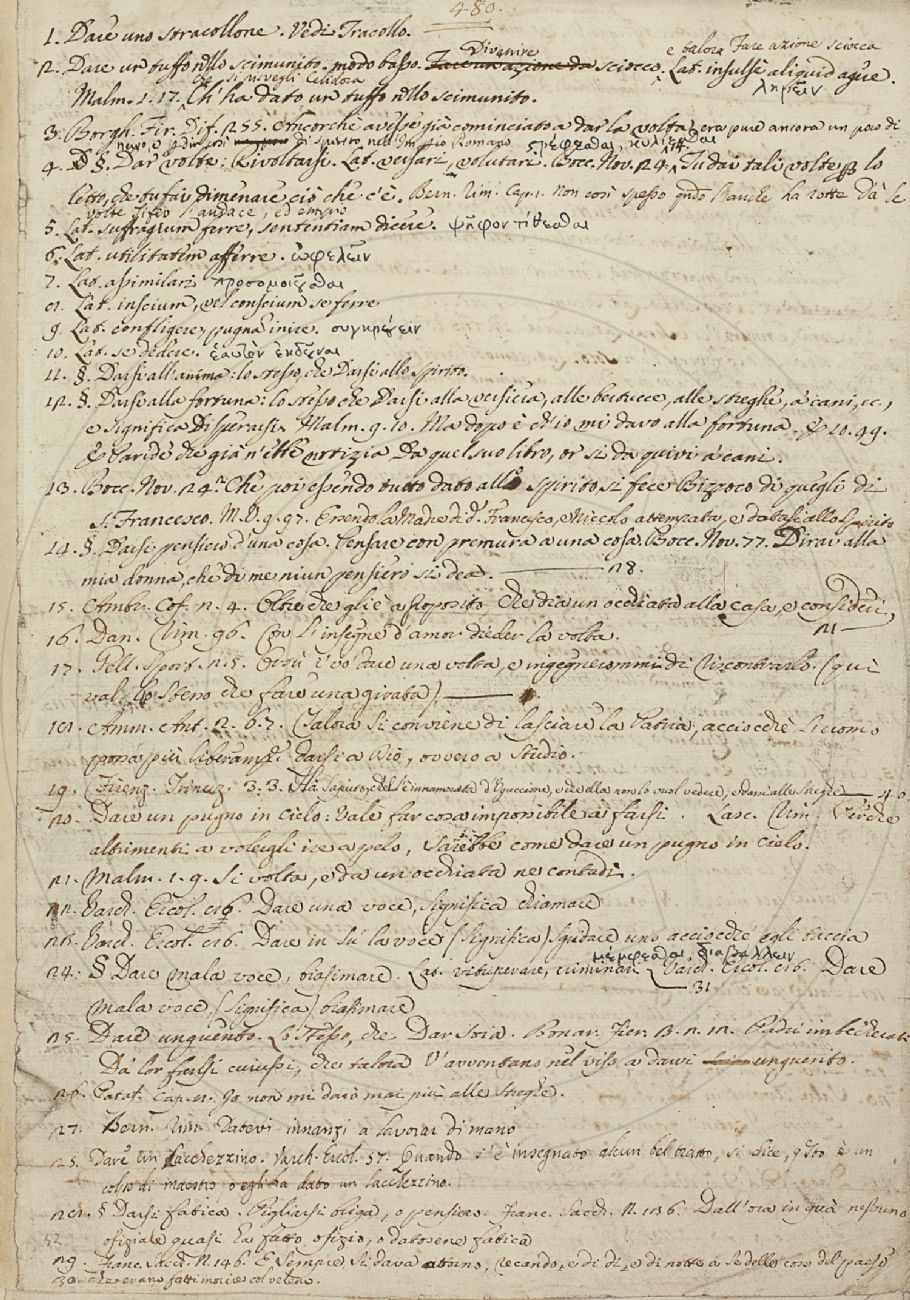 480.
1. Dare uno stracollone. Vedi Tracollo.
Divenire e talora Fare azione sciocca
2. Dare un tuffo nello scimunito. modo basso. sciocco. Lat. insulse aliquid agere. ληρεῖν
che si risvegli Celidora
Malm. 1. 17. Ch'ha dato un tuffo nello scimunito.
3. Borgh. Fir. Dif. 255. Ancorchè avesse già cominciato a dar la volta, era pure ancora un poco di
di spirito nell'Imperio Romano στρέφεσθαι, κυλίεσθαι
4. §. Dar volte: Rivoltarsi. Lat. versari, volutari. Bocc. Nov. 24. Tu dai tali volte per lo
letto, che tu fai dimenare ciò che c'è. Bern. Rim. Cap. 1. Non così spesso quando l'anche ha rotte Dà le
volte Tifeo l'audace, ed empio
5. Lat. suffragium ferre, sententiam dicere. ψῆφον τίθεσθαι
6. Lat. utilitatem afferre. ὠφελεῖν
7. Lat. assimilari
8. Lat. inscium, vel conscium se ferre
9. Lat. confligere, pugnam inire.
10. Lat. se dedere.
11. §. Darsi all'anima: lo stesso, che Darsi allo spirito.
12. §. Darsi alla fortuna: lo stesso che Darsi alla versiera, alle bertucce, alle streghe, a' cani, ec.,
e significa Disperarsi. Malm. 9. 10. Ma dopo è ch'io mi davo alla fortuna. E 10. 49.
E Paride che già n'ebbe notizia Da quel suo libro, or si dà quivi a' cani.
13. Bocc. Nov. 24. Che poi essendo tutto dato allo spirito si fece Bizzoco di quegli di
S. Francesco. M. V. 9. 97. Essendo la Madre di d. Francesco, e Niccolo attempata, e datasi allo Spirito
14. §. Darsi pensiero d'una cosa. Pensare con premura a una cosa. Bocc. Nov. 77. Dirai alla
mia donna, che di me niun pensiero si dea. 28.
15. Ambr. Cof. n. 4. Oltre che gli è a proposito, che dia un'occhiata alla casa, e consideri
21
16. Dan. Rim. 96. Con l'insegne d'amor dieder la volta.
17. Gell. Sport. n. 5. Orsù i' vo dare una volta, e ingegnerommi di riscontrarlo. (qui
val lo stesso che fare una girata)
18. Amm. Ant. 2. 6. 7. Talora si conviene di lasciare la Patria, acciocchè l'uomo
possa più liberamente darsi a Dio, ovvero a studio.
19. Firenz. Trinuz. 3. 3. Ha saputo, che s'è innamorato d'Uguccione, e che ella non lo vuol vedere, e dassi alle streghe 40
20. Dare un pugno in cielo: Vale far cosa impossibile a farsi. Lasc. Rim. Perchè
altrimenti a volergli ire a pelo, Sarebbe come dare un pugno in cielo.
21. Malm. 1. 9. Si volta, e dà un'occhiata ne' contadi.
22. Varch. Ercol. 86. Dare una voce, significa chiamare
23. Varch. Ercol. 86. Dare in su la voce (significa) sgridare uno acciocchè egli taccia
μέμφεσθαι, διαβάλλειν
24. § Dare mala voce, biasimare. Lat. vituperare, criminari. Varch. Ercol. 86. Dare
31
Mala voce, (significa) biasimare
25. Dare unguento. Lo stesso, che Dar soia. Bonar. Fier.
Da lor farsi cuiussi, che talora V'avventano nel viso a darvi unguento.
26. Cap. Io non mi darò mai più alle streghe.
27. Bern. Rim. Datevi innanzi a lavorar di mano
25. Dare un lacchezzino. Varch. Ercol. 57. Quando s'è insegnato alcun bel tratto, si dice, questo è un
colpo di maestro, o egli ha dato un lacchezzino.
28. § Darsi fatica. Pigliarsi briga, o pensiero. Franc. Sacch. N. 136. Dall'ora in quà nessuno
ofiziale quasi ha fatto ofizio, o datosene fatica
52
29. Franc. Sacch. N. 146. E sempre si dava attorno, recando, e di dì, e di notte a sè delle cose del paese
30. che erano fatti morire col veleno.